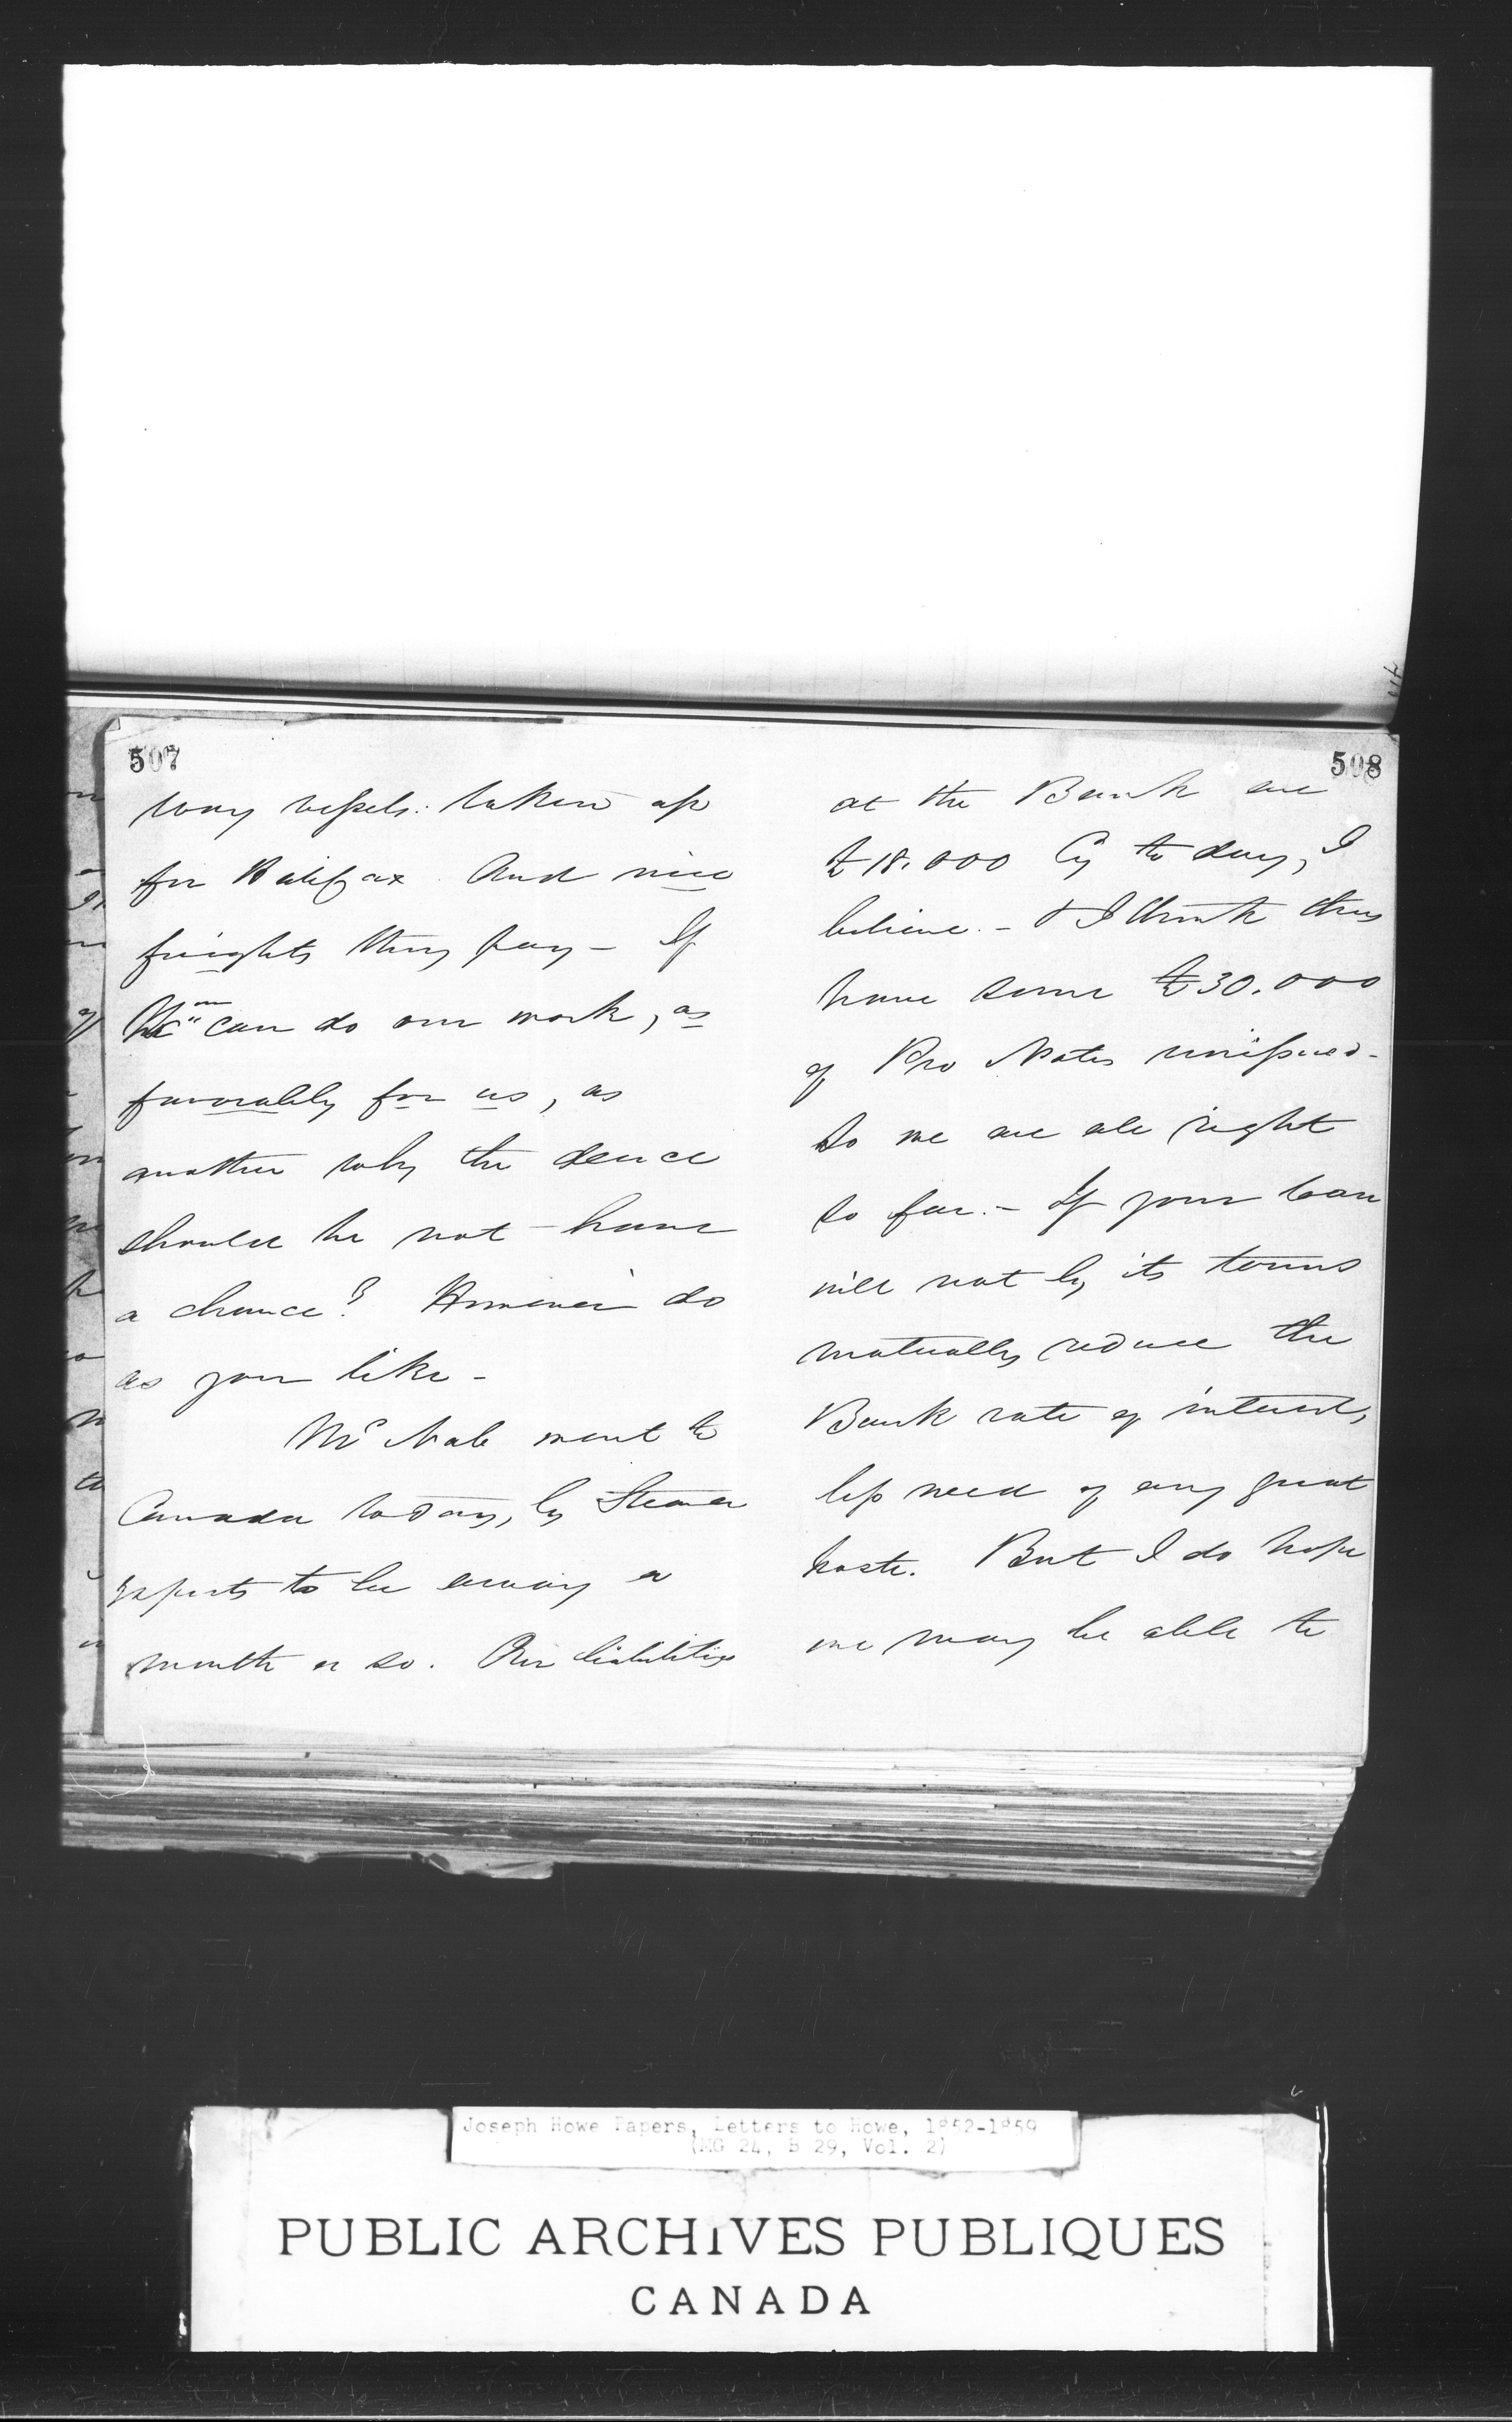 507
way vessels: taken up
for Halifax. And nice
freights they pay - If
can do our work, as
favorably for us, as
another why the deuce
should he not have
a chance? However do
as you like -
McNab went to
Canada to day, by Steamer
expects to be away a
month or so. Our liabilities
508
at the Bank are
£18.000 Cy to day, I
believe. - & I think they
have some £30.000
of Pro Notes unissued -
So we are all right
so far. - If your loan
will not by its terms
mutually reduce the
Bank rate of interest,
less need of any great
haste. But I do hope
we may be able to
Joseph Howe Papers, Letters to Howe, 1852-1859
(MG 24, B 29, Vol. 2)
PUBLIC ARCHIVES PUBLIQUES
CANADA